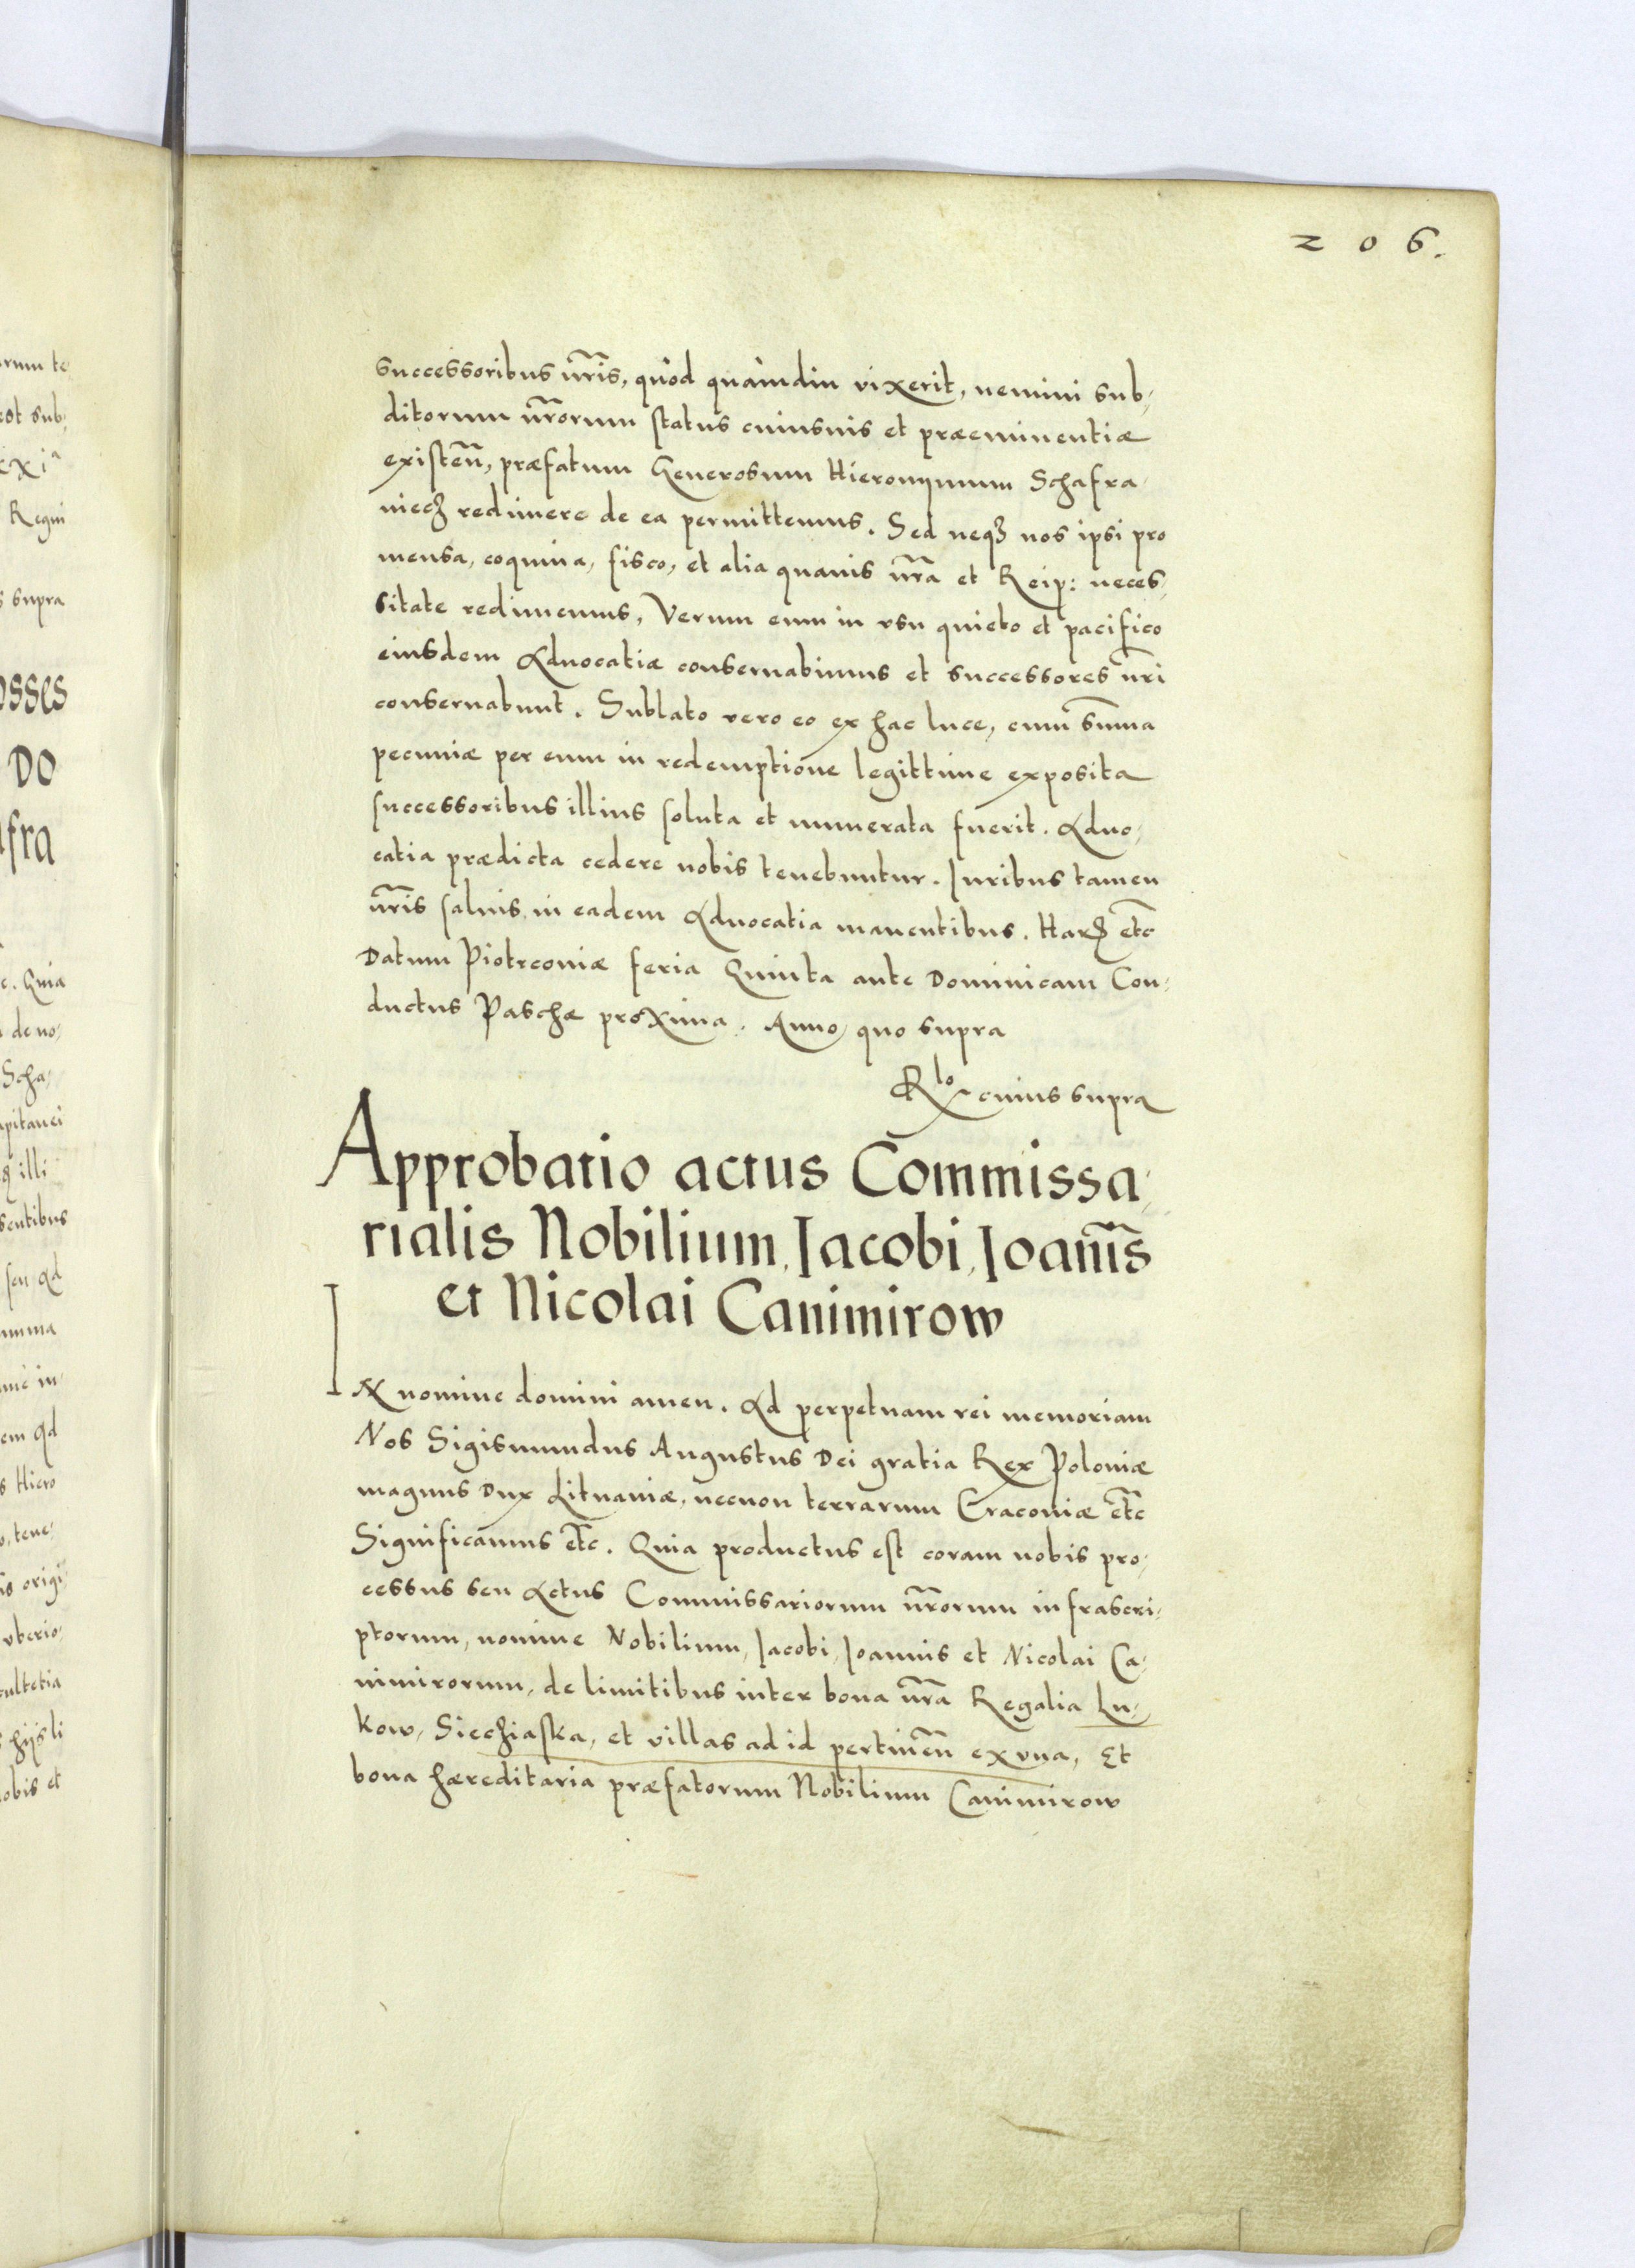 206.
successoribus nr̃is, quòd quàmdiu vixerit, nemini sub,
ditorum nr̃orum status cuiusuis et præeminentiæ
existeñ, præfatum Generosum Hieronymum Schafra,
niecz redimere de ea permittemus. Sed neqꝫ nos ipsi pro
mensa, coquina, fisco, et alia quauis nr̃a et Reip: neces,
sitate redimemus, Verum eum in vsu quieto et pacifico
eiusdem Aduocatiæ conseruabimus et successores nr̃i
conseruabunt. Sublato vero eo ex hac luce, cum sum̃a
pecuniæ per eum in redemptione legittime exposita
successoribus illius soluta et numerata fuerit. Aduo,
catia prædicta cedere nobis tenebuntur. Iuribus tamen
nr̃is saluis in eadem Aduocatia manentibus. Harꝫ etc̃
Datum Piotrconiæ feria Quinta ante Dominicam Con,
ductus Paschæ proxima. Anno quo supra
Rlo cuius supra
Approbatio actus Commissa,
rialis Nobilium, Iacobi, Ioannis̃
et Nicolai Canimirow
IN nomine domini amen. Ad perpetuam rei memoriam
Nos Sigismundus Augustus Dei gratia Rex Poloniæ
magnus Dux Lituaniæ, necnon terrarum Cracouiæ etc̃
Significamus etc̃. Quia productus est coram nobis pro,
cessus seu Actus Commissariorum nr̃orum infrascri,
ptorum, nomine Nobilium, Iacobi, Ioannis et Nicolai Ca,
nimirorum, de limitibus inter bona nr̃a Regalia Lu,
kow, Siecziaska, et villas ad id pertineñ ex vna, Et
bona hæreditaria præfatorum Nobilium Canimirow
rum te
est sub,
xxia
Regni
s supra
osses
DO
afra
c. Quia
de no,
Scha,
apitanei
illi
sentibus
seu Ad
umma
mè in
em Ad
s Hiero
o, tene,
is origi,
vberio,
cultetia
hijs li
obis et